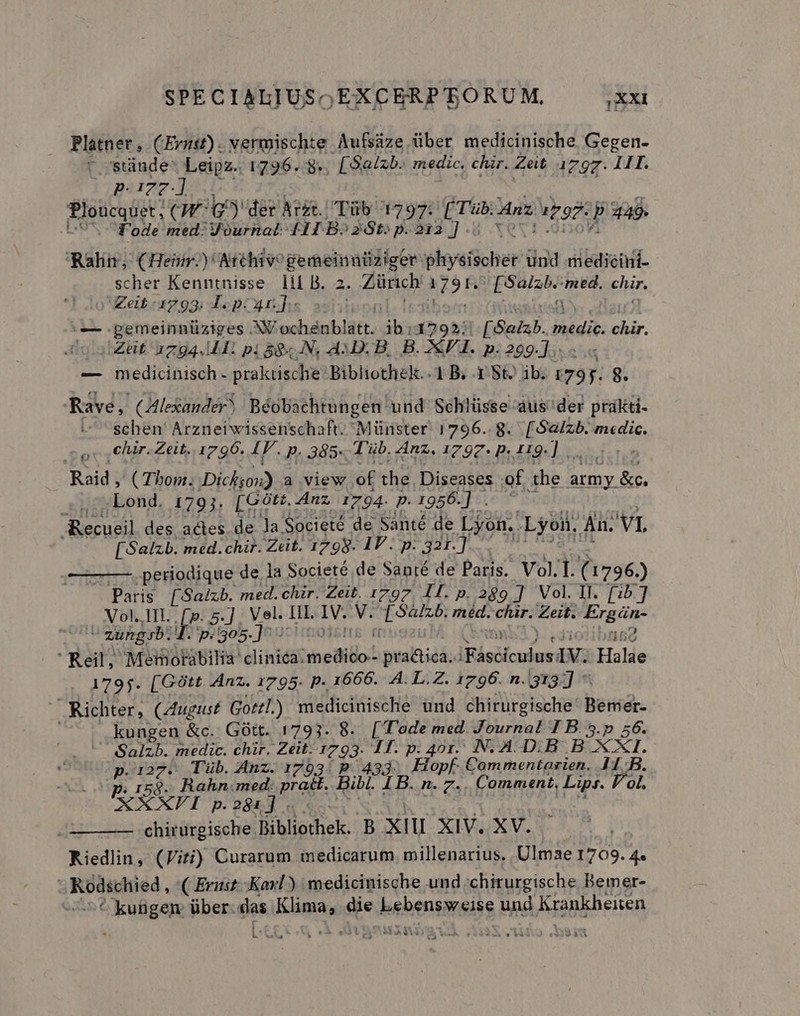 SPECIALIUS EXCERPTORUM. XXI
Platner, (Ernst). vermischte Aufsäze über medicinische Gegen-
stände Leipz. 1796. 8. [Salzb. medic. chir. Zeit 1797. III.
p. 177.]
Ploucquet, (W. G) der Arzt. Tüb 1797. [Tüb. Anz 1797. p 449.
Tode med. Journal III B. 2 St. p. 212 ]
Rahn, (Heinr.) Archiv gemeinnüziger physischer und medicini-
scher Kenntnisse III B. 2. Zürich 1791. [Salzb. med. chir.
Zeit 1793. I. p. 41.]
— gemeinnüziges Wochenblatt. ib 1792. [Salzb. medic. chir.
Zeit 1794. II. p. 58. N. A. D. B. B. XVI. p. 299.]
— medicinisch-praktische Bibliothek. 1 B. 1 St. ib. 1795. 8.
Rave, (Alexander) Beobachtungen und Schlüsse aus der prakti-
schen Arzneiwissenschaft. Münster 1796. 8. [Salzb. medic.
chir. Zeit. 1796. IV. p. 385. Tüb. Anz. 1797. p. 119.]
Raid, (Thom. Dickson) a view of the Diseases of the army &c.
Lond. 1793. [Gött. Anz 1794. p. 1956.]
Recueil des actes de la Societé de Santé de Lyon. Lyon. An. VI.
[Salzb. med. chir. Zeit. 1798. IV. p. 321.]
——— periodique de la Societé de Santé de Paris. Vol. I. (1796.)
Paris [Salzb. med. chir. Zeit. 1797 II. p. 289 ] Vol. II. [ib ]
Vol. III. [p. 5.] Vol. III. IV. V. [Salzb. med. chir. Zeit. Ergän-
zungsb. I. p. 305.]
Reil, Memorabilia clinica medico-practica. Fasciculus IV. Halae
1795. [Gött Anz. 1795. p. 1666. A. L. Z. 1796. n. 313.]
Richter, (August Gottl.) medicinische und chirurgische Bemer-
kungen &c. Gött. 1793. 8. [Tode med Journal I B. 3. p 56.
Salzb. medic. chir. Zeit. 1793. II. p. 401. N. A. D. B B XXI.
p. 127. Tüb. Anz. 1793 p 433. Hopf Commentarien. II B.
p. 158. Rahn med. pract. Bibl. I B. n. 7. Comment. Lips. Vol.
XXXVI p. 281]
——— chirurgische Bibliothek. B XIII XIV. XV.
Riedlin, (Viti) Curarum medicarum millenarius. Ulmae 1709. 4.
Rodschied, (Ernst Karl) medicinische und chirurgische Bemer-
kungen über das Klima, die Lebensweise und Krankheiten